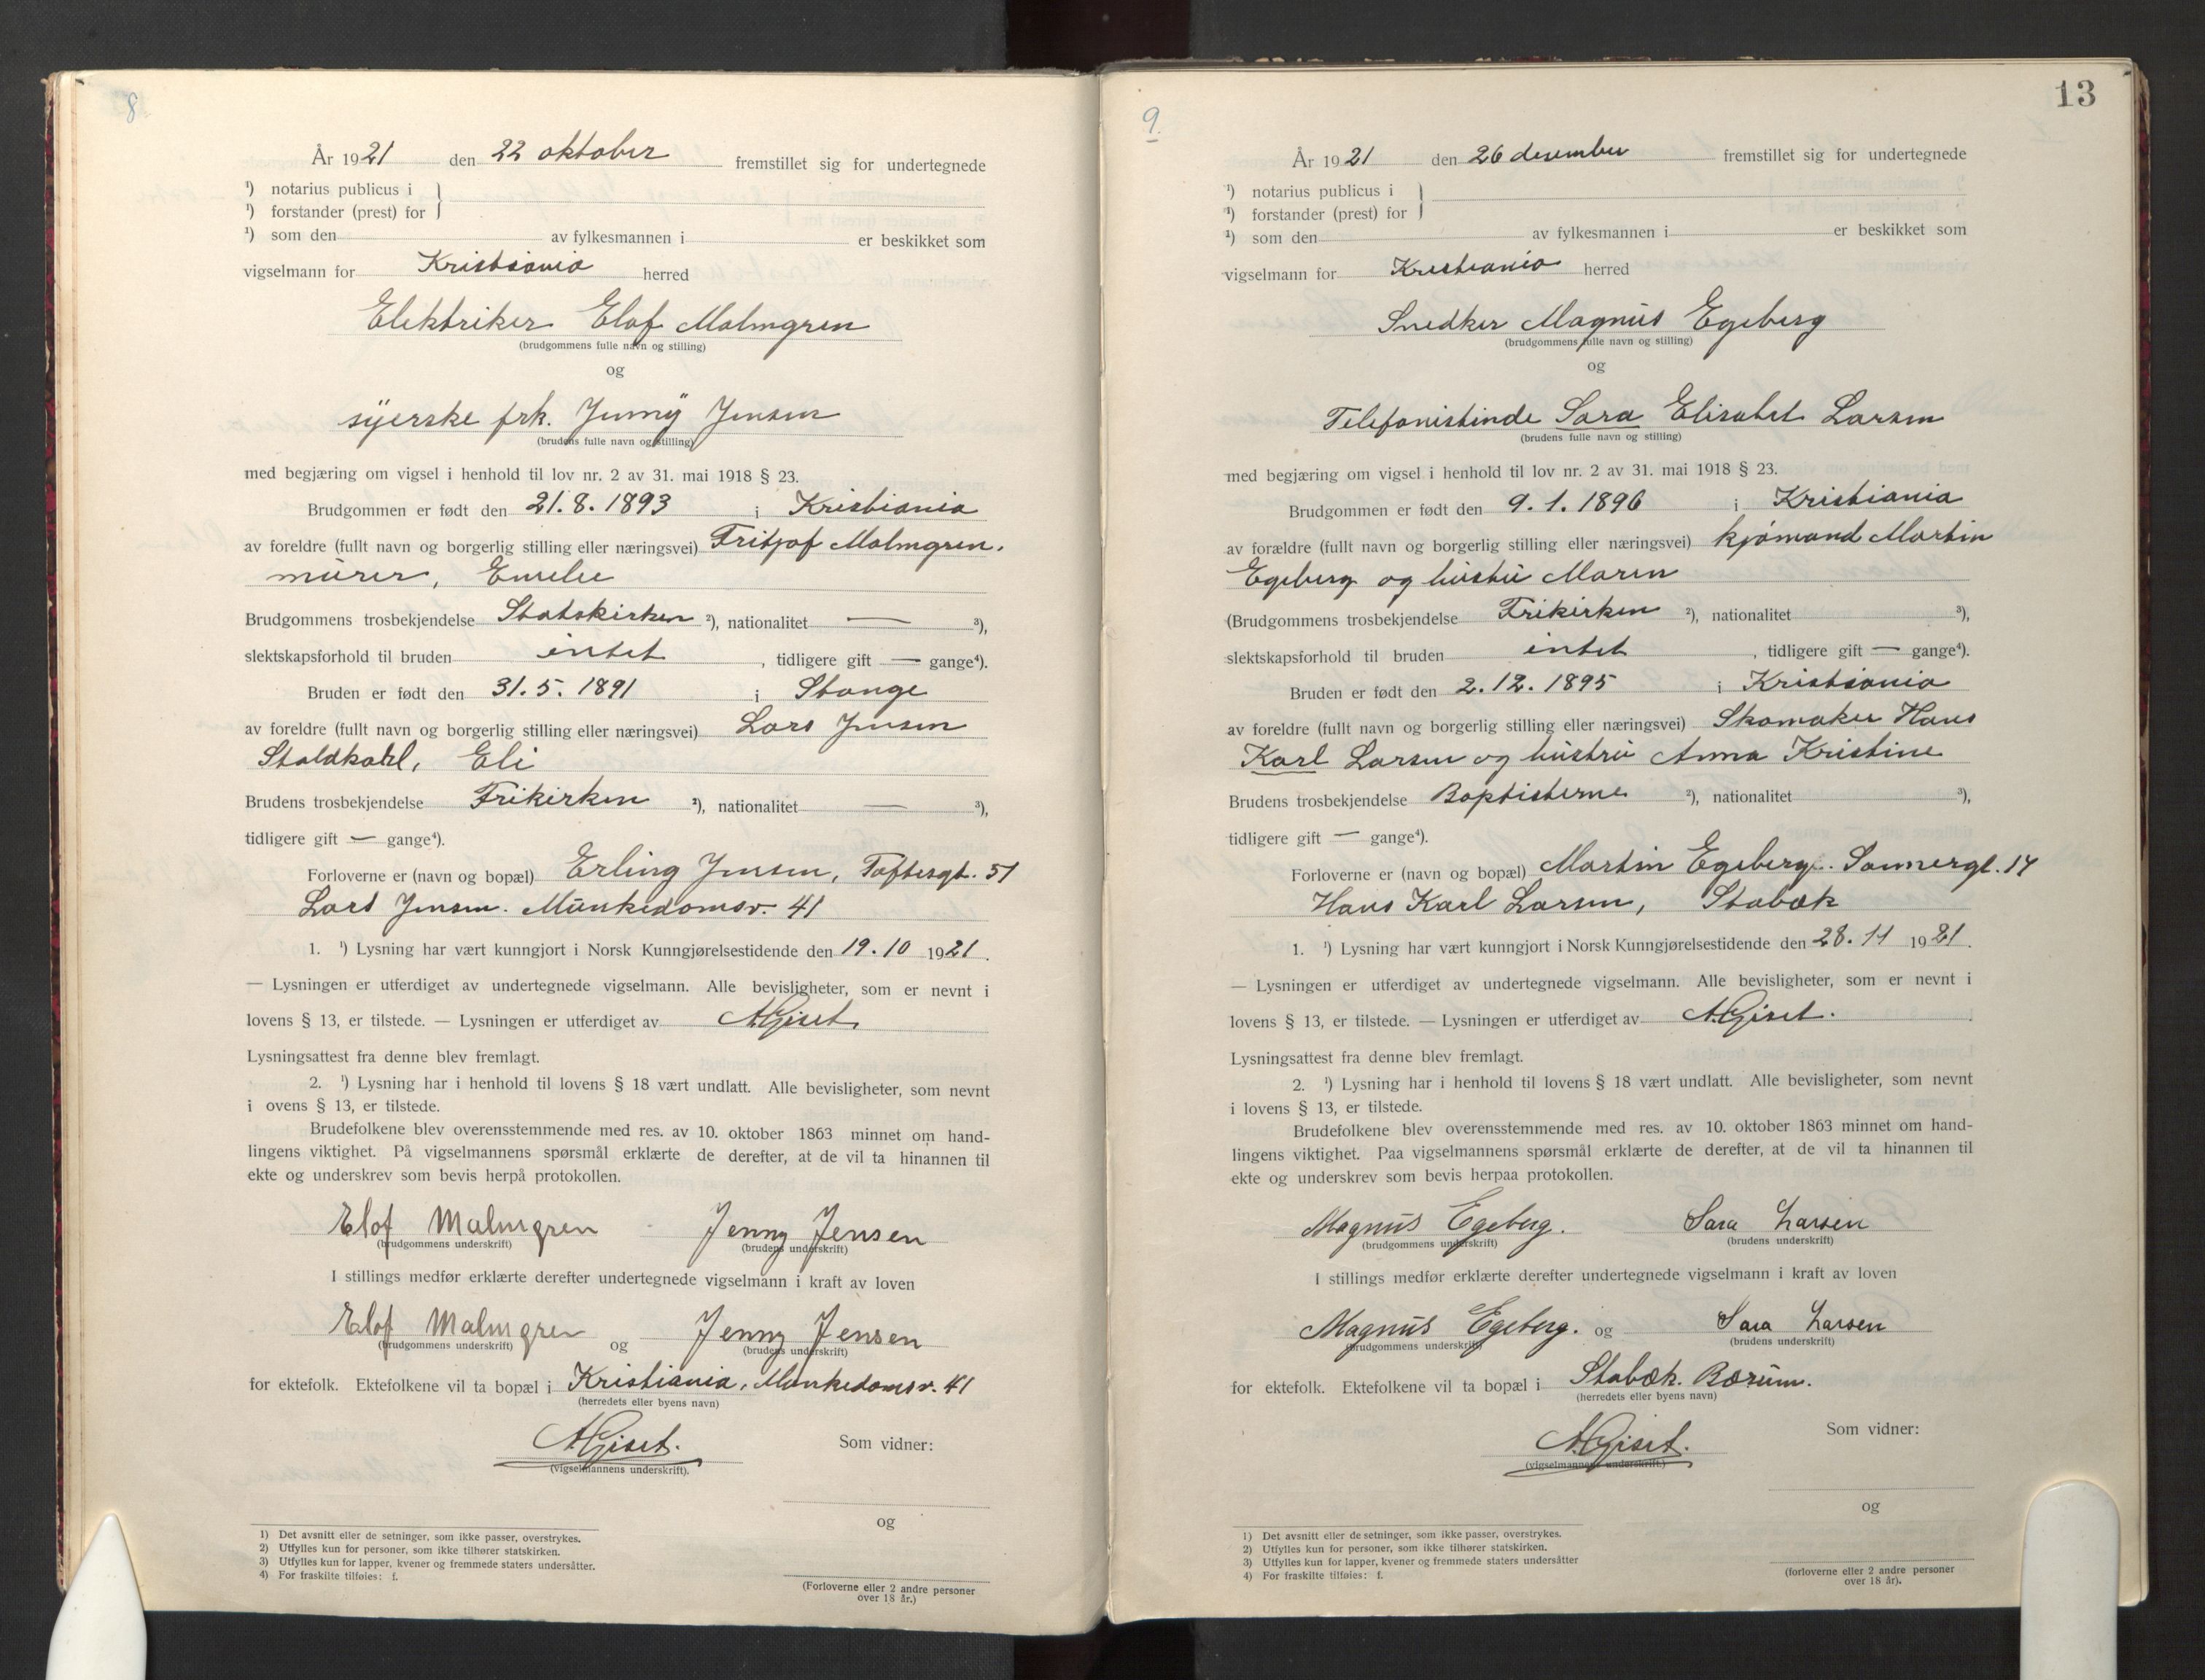 8
År 1921 den 22 oktober fremstillet sig for undertegnede
¹) notarius publicus i
¹) forstander (prest) for
¹) som den av fylkesmannen i er beskikket som
vigselmann for Kristiania herred
Elektriker Elof Malmgren
(brudgommens fulle navn og stilling)
og
syerske frk. Jenny Jensen
(brudens fulle navn og stilling)
med begjæring om vigsel i henhold til lov nr. 2 av 31. mai 1918 § 23.
Brudgommen er født den 21. 8. 1893 i Kristiania
av foreldre (fullt navn og borgerlig stilling eller næringsvei) Fritjof Malmgren,
murer, Emelie
Brudgommens trosbekjendelse Statskirken ²), nationalitet — ³),
slektskapsforhold til bruden intet, tidligere gift — gange⁴).
Bruden er født den 31. 5. 1891 i Stange
av foreldre (fullt navn og borgerlig stilling eller næringsvei) Lars Jensen
Staldkarl, Eli
Brudens trosbekjendelse Frikirken ²), nationalitet — ³),
tidligere gift — gange⁴).
Forloverne er (navn og bopæl) Erling Jensen, Toftesgt. 51
Lars Jensen. Munkedamsv. 41
1. ¹) Lysning har vært kunngjort i Norsk Kunngjørelsestidende den 19. 10 1921.
— Lysningen er utferdiget av undertegnede vigselmann. Alle bevisligheter, som er nevnt i
lovens § 13, er tilstede. — Lysningen er utferdiget av A. Giset
Lysningsattest fra denne blev fremlagt.
2. ¹) Lysning har i henhold til lovens § 18 vært undlatt. Alle bevisligheter, som nevnt
i ovens § 13, er tilstede.
Brudefolkene blev overensstemmende med res. av 10. oktober 1863 minnet om hand-
lingens viktighet. På vigselmannens spørsmål erklærte de derefter, at de vil ta hinannen til
ekte og underskrev som bevis herpå protokollen.
Elof Malmgren Jenny Jensen
(brudgommens underskrift) (brudens underskrift)
I stillings medfør erklærte derefter undertegnede vigselmann i kraft av loven
Elof Malmgren og Jenny Jensen
(brudgommens underskrift) (brudens underskrift)
for ektefolk. Ektefolkene vil ta bopæl i Kristiania, Munkedamsv. 41
(herredets eller byens navn)
A. Giset.
(vigselmannens underskrift).
Som vidner:
og
1) Det avsnitt eller de setninger, som ikke passer, overstrykes.
2) Utfylles kun for personer, som ikke tilhører statskirken.
3) Utfylles kun for lapper, kvener og fremmede staters undersåtter.
4) For fraskilte tilføies: f.
(Forloverne eller 2 andre personer
over 18 år.)
13
9.
År 1921 den 26 desember fremstillet sig for undertegnede
¹) notarius publicus i
¹) forstander (prest) for
¹) som den av fylkesmannen i er beskikket som
vigselmann for Kristiania herred
Snedker Magnus Egeberg
(brudgommens fulle navn og stilling)
og
Telefonistinde Sara Elisabet Larsen
(brudens fulle navn og stilling)
med begjæring om vigsel i henhold til lov nr. 2 av 31. mai 1918 § 23.
Brudgommen er født den 9. 1. 1896 i Kristiania
av forældre (fullt navn og borgerlig stilling eller næringsvei) kjømand Martin
Egeberg og hustru Maren
(Brudgommens trosbekjendelse Frikirken ²), nationalitet ³),
slektskapsforhold til bruden intet, tidligere gift — gange⁴).
Bruden er født den 2. 12. 1895 i Kristiania
av foreldre (fullt navn og borgerlig stilling eller næringsvei) Skomaker Hans
Karl Larsen og hustru Anna Kristine
Brudens trosbekjendelse Baptisterne ²), nationalitet ³),
tidligere gift — gange⁴).
Forloverne er (navn og bopæl) Martin Egeberg. Sannergt. 14
Hans Karl Larsen, Stabæk
1. ¹) Lysning har vært kunngjort i Norsk Kunngjørelsestidende den 28. 11 1921.
— Lysningen er utferdiget av undertegnede vigselmann. Alle bevisligheter, som er nevnt i
lovens § 13, er tilstede. — Lysningen er utferdiget av A. Giset.
Lysningsattest fra denne blev fremlagt.
2. ¹) Lysning har i henhold til lovens § 18 vært undlatt. Alle bevisligheter, som nevnt
i lovens § 13, er tilstede.
Brudefolkene blev overensstemmende med res. av 10. oktober 1863 minnet om hand-
lingens viktighet. Paa vigselmannens spørsmål erklærte de derefter, at de vil ta hinannen til
ekte og underskrev som bevis herpaa protokollen.
Magnus Egeberg. Sara Larsen
(brudgommens underskrift) (brudens underskrift)
I stillings medfør erklærte derefter undertegnede vigselmann i kraft av loven
Magnus Egeberg. og Sara Larsen
(brudgommens underskrift) (brudens underskrift)
for ektefolk. Ektefolkene vil ta bopæl i Stabæk. Bærum.
(herredets eller byens navn)
A. Giset.
(vigselmannens underskrift.)
Som vidner:
og
1) Det avsnitt eller de setninger, som ikke passer, overstrykes.
2) Utfylles kun for personer, som ikke tilhører statskirken.
3) Utfylles kun for lapper, kvener og fremmede staters undersåtter
4) For fraskilte tilføies: f.
(forloverne eller 2 andre personer
over 18 år).